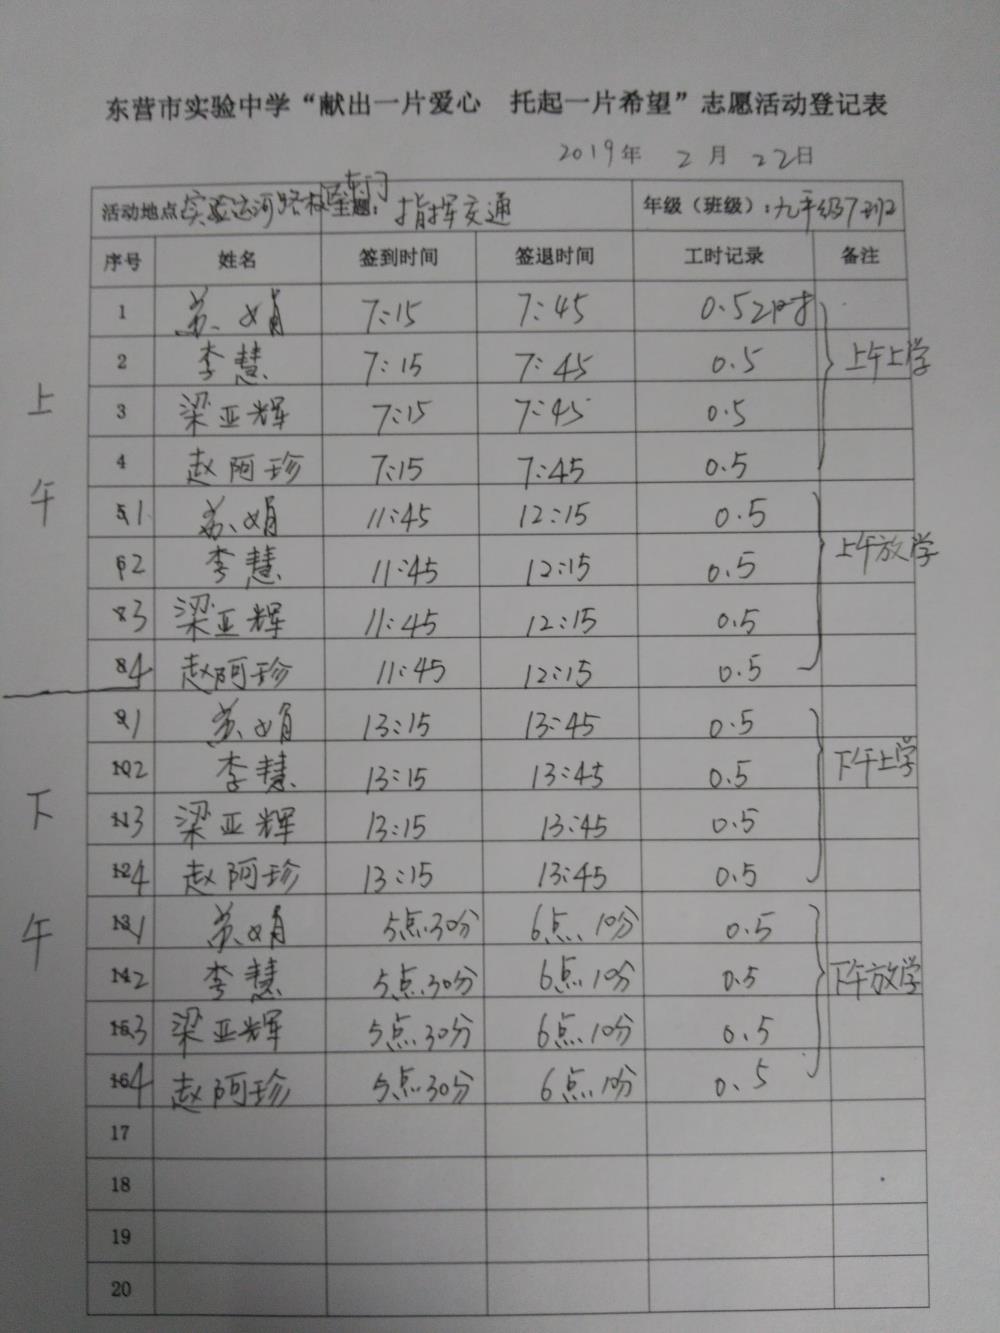 东营市实验中学“献出一片爱心 托起一片希望”志愿活动登记表
2019年 2月 22日
活动地点:实验运河路校区东门 主题:指挥交通 年级(班级):九年级7班
序号 姓名 签到时间 签退时间 工时记录 备注
上午
1 苏娟 7:15 7:45 0.5小时
2 李慧 7:15 7:45 0.5 上午上学
3 梁亚辉 7:15 7:45 0.5
4 赵阿珍 7:15 7:45 0.5
5 1 苏娟 11:45 12:15 0.5
6 2 李慧 11:45 12:15 0.5 上午放学
7 3 梁亚辉 11:45 12:15 0.5
8 4 赵阿珍 11:45 12:15 0.5
下午
9 1 苏娟 13:15 13:45 0.5
10 2 李慧 13:15 13:45 0.5 下午上学
11 3 梁亚辉 13:15 13:45 0.5
12 4 赵阿珍 13:15 13:45 0.5
13 1 苏娟 5点30分 6点10分 0.5
14 2 李慧 5点30分 6点10分 0.5 下午放学
15 3 梁亚辉 5点30分 6点10分 0.5
16 4 赵阿珍 5点30分 6点10分 0.5
17
18
19
20